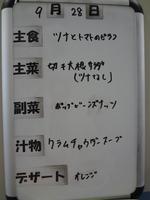 9月28日
主食 ツナとトマトのピラフ
主菜 切干大根サラダ
(ツナなし)
副菜 ポップビーンズナッツ
汁物 クラムチャウダースープ
デザート オレンジ